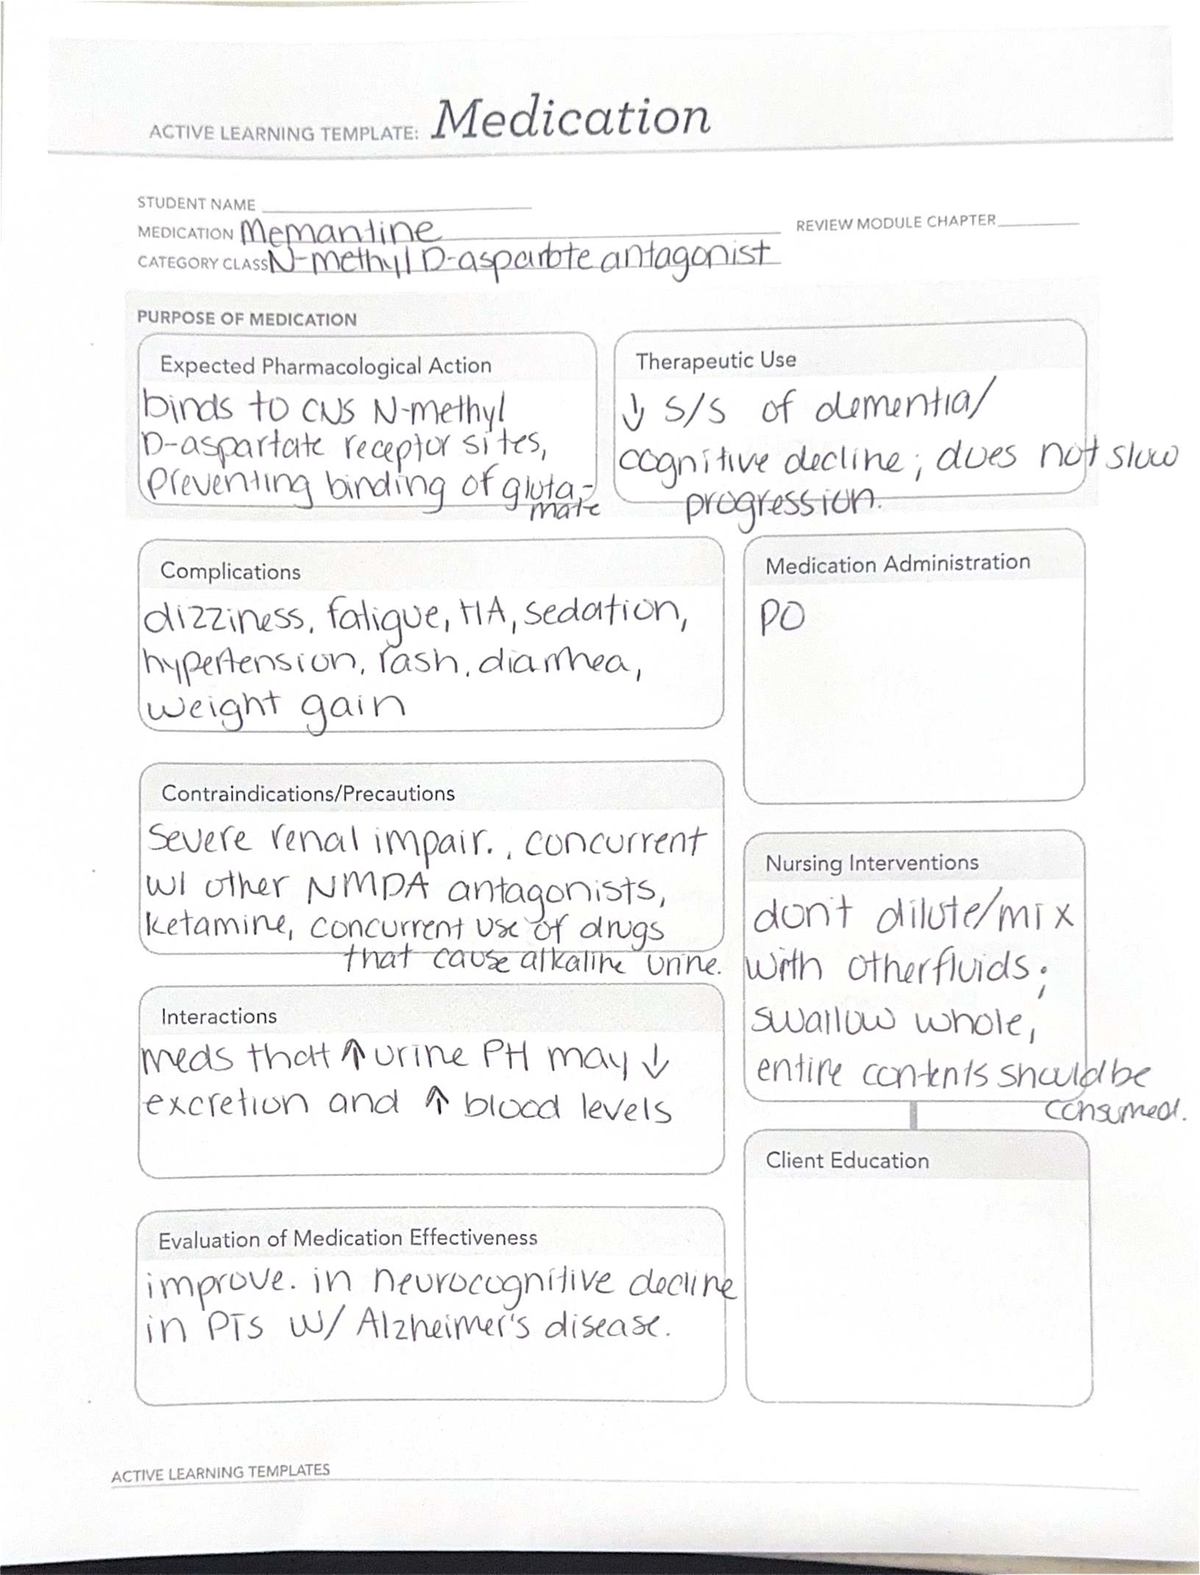 ACTIVE LEARNING TEMPLATE: Medication
STUDENT NAME
MEDICATION Memantine
REVIEW MODULE CHAPTER
CATEGORY CLASS N-methyl D-aspartate antagonist
PURPOSE OF MEDICATION
Expected Pharmacological Action
binds to CNS N-methyl
D-aspartate receptor sites,
preventing binding of gluta-
mate
Therapeutic Use
↓ S/S of dementia/
cognitive decline; does not slow
progression.
Complications
dizziness, fatigue, HA, sedation,
hypertension, rash, diarrhea,
weight gain
Medication Administration
PO
Contraindications/Precautions
severe renal impair., concurrent
w/ other NMDA antagonists,
ketamine, concurrent use of drugs
that cause alkaline urine.
Nursing Interventions
don't dilute/mix
with other fluids;
swallow whole,
entire contents should be
consumed.
Interactions
meds that ↑ urine PH may ↓
excretion and ↑ blood levels
Client Education
Evaluation of Medication Effectiveness
improve. in neurocognitive decline
in PTs w/ Alzheimer's disease.
ACTIVE LEARNING TEMPLATES